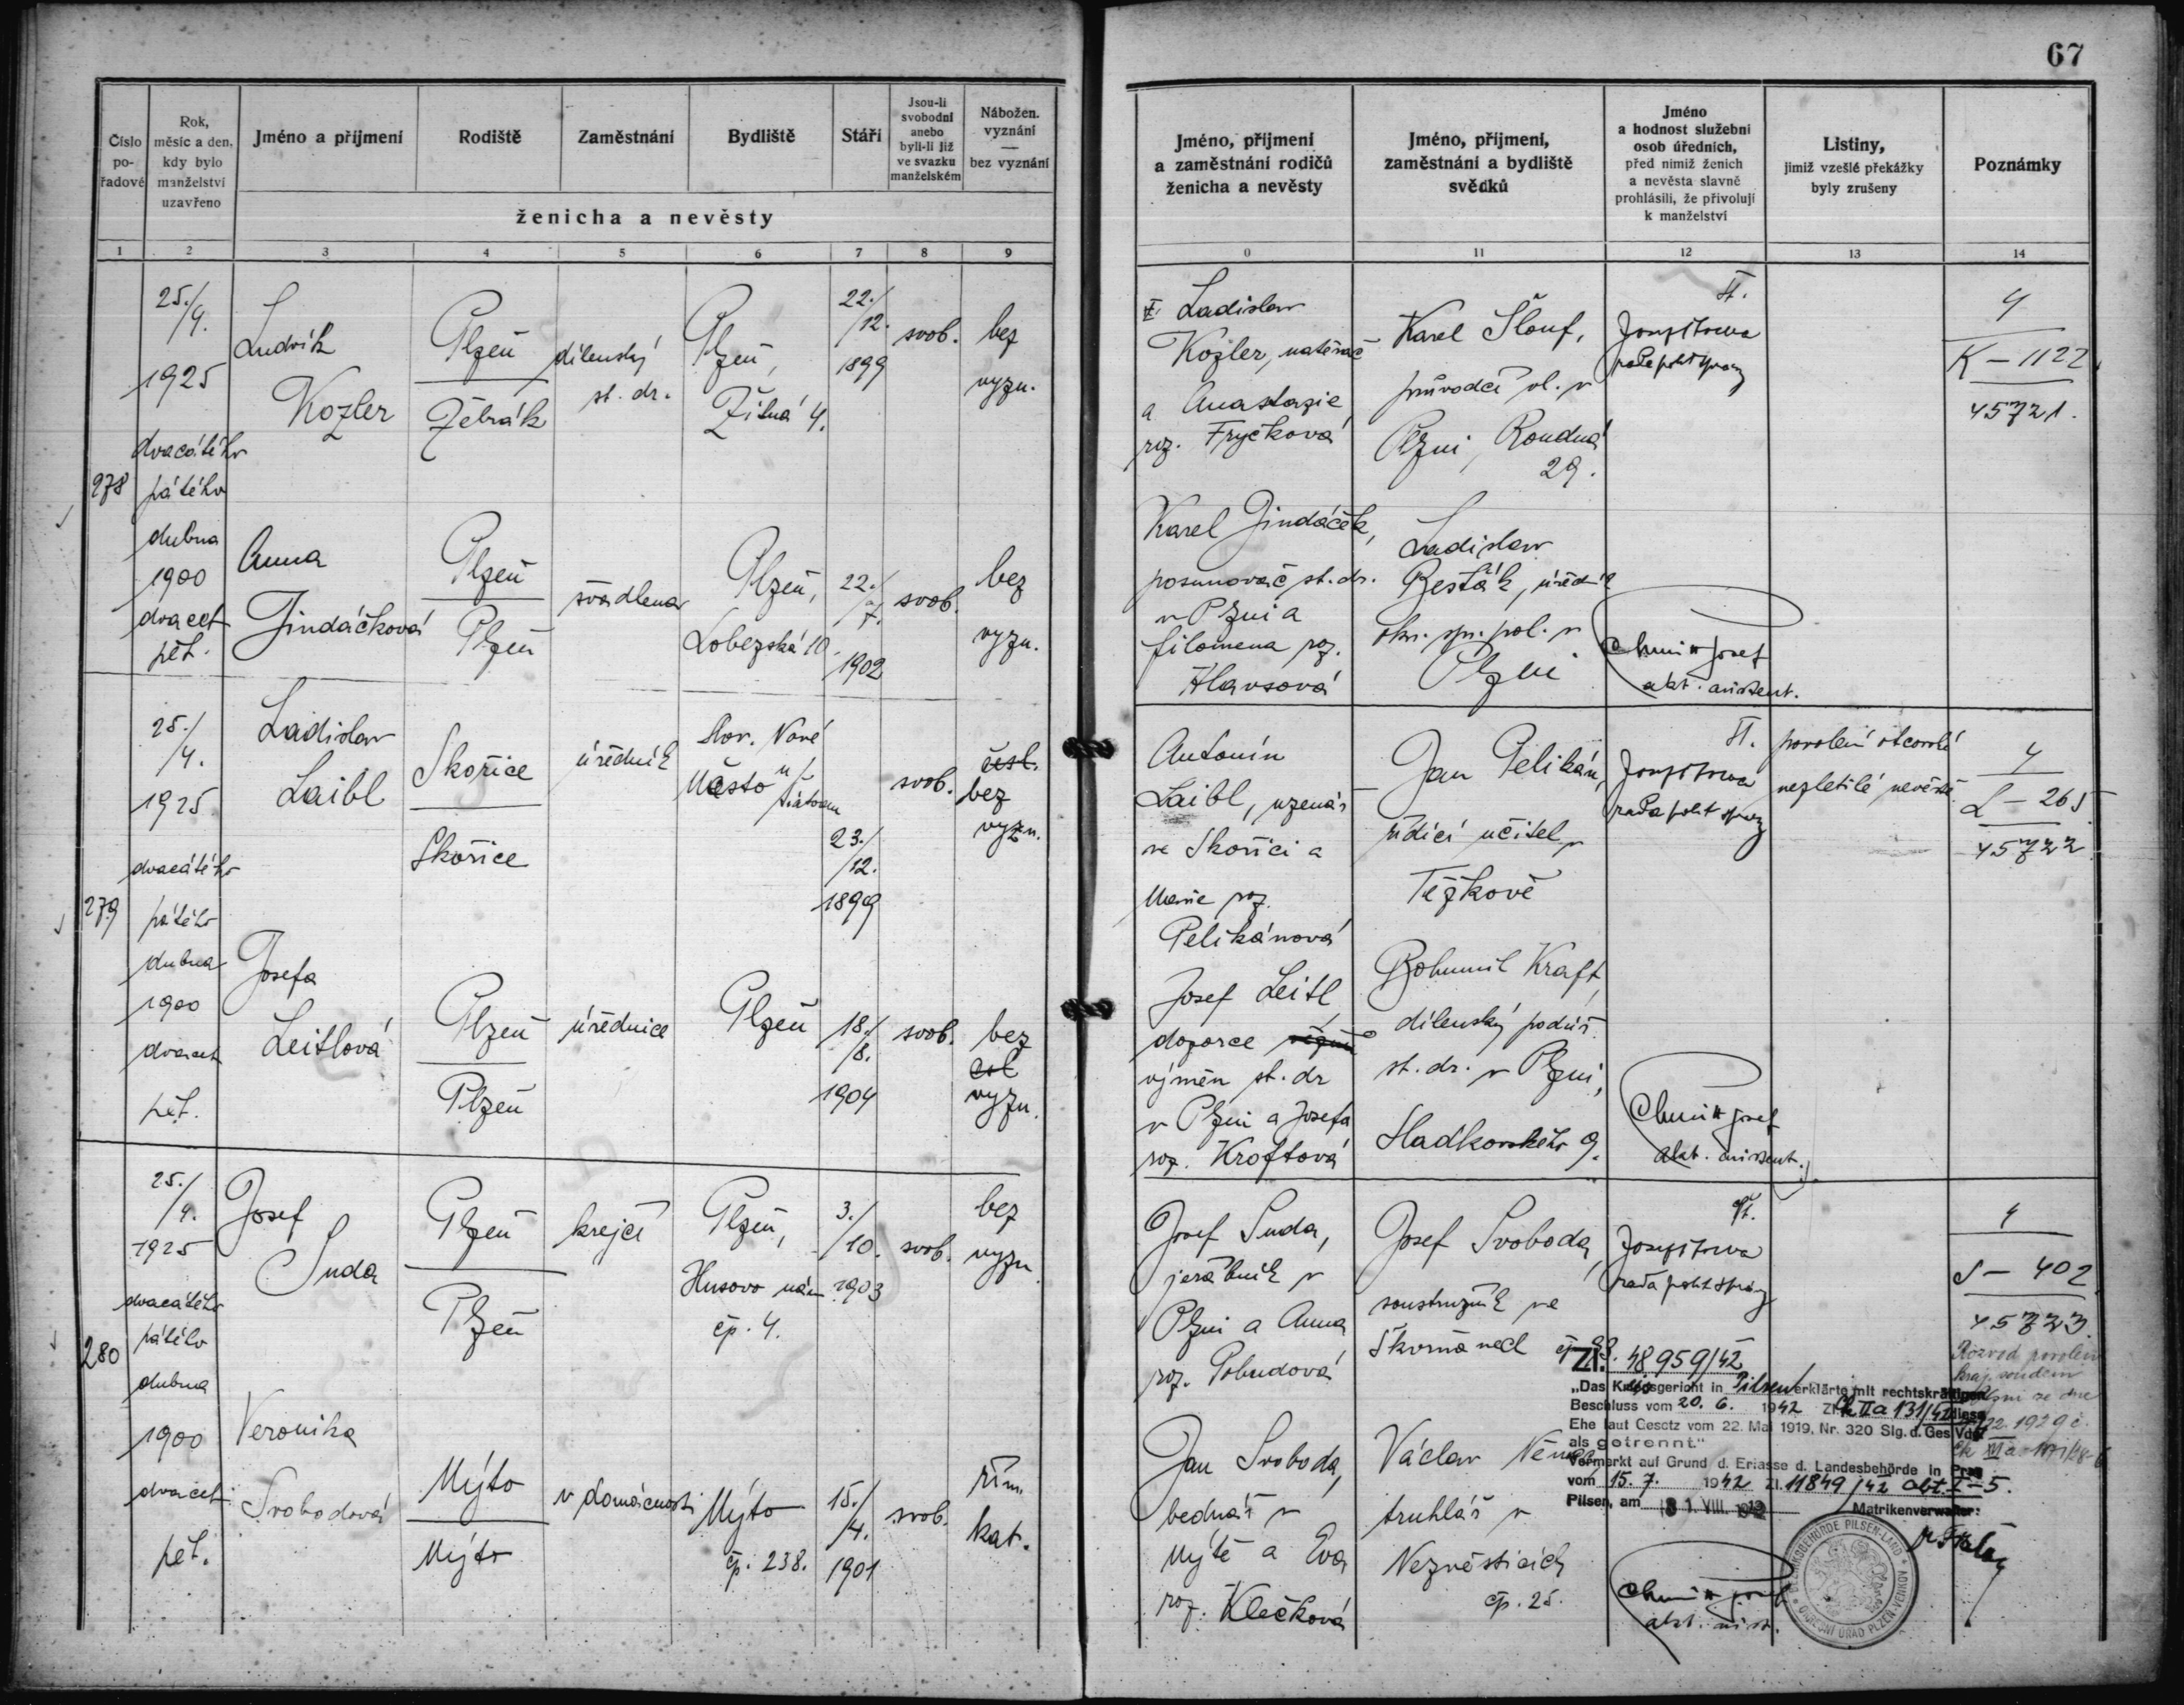 67
Číslo po- řadové
Rok, měsíc a den, kdy bylo manželství uzavřeno
Jméno a příjmení
Rodiště
Zaměstnání
Bydliště
Stáří
Jsou-li svobodni anebo byli-li již ve svazku manželském
Nábožen. vyznání — bez vyznání
ženicha a nevěsty
Jméno, příjmení a zaměstnání rodičů ženicha a nevěsty
Jméno, příjmení, zaměstnání a bydliště svědků
Jméno a hodnost služební osob úředních, před nimiž ženich a nevěsta slavně prohlásili, že přivolují k manželství
Listiny, jimiž vzešlé překážky byly zrušeny
Poznámky
1 2 3 4 5 6 7 8 9
0 11 12 13 14
278
25./4.
1925
dvacátého
pátého
dubna
1900
dvacet
pět.
Ludvík
Kozler
Plzeň
Žebrák
dílenský
st. dr.
Plzeň,
Žitná 4.
22./12.
1899
svob.
bez
vyzn.
Ladislav
Kozler, natěrač
a Anastazie
roz. Fryčková
Karel Šlouf,
průvodčí vl. v
Plzni, Roudná
29.
4
K – 1122
45721.
Anna
Jindáčková
Plzeň
Plzeň
švadlena
Plzeň,
Lobezská 10.
22./7.
1902
svob.
bez
vyzn.
Karel Jindáček,
posunovač st. dr.
v Plzni a
filomena roz.
Hlavsová
Ladislav
Bešťák, úředník
okr. spr. pol. v
Plzni
Josef
279
25./4.
1925
dvacátého
pátého
dubna
1900
dvacet
pět.
Ladislav
Laibl
Skořice
Skořice
úředník
Slov. Nové
Město n/
23./12.
1899
svob.
čsl.
bez
vyzn.
Antonín
Laibl, uzenář
ve Skořici a
Marie roz.
Pelikánová
Jan Pelikán,
řídící učitel v
Těžkově
povolení otcovské
nezletilé nevěstě
4
L – 265
45722
Josefa
Leitlová
Plzeň
Plzeň
úřednice
Plzeň
18./8.
1904
svob.
bez
čsl
vyzn.
Josef Leitl,
dozorce
výměn st. dr
v Plzni a Josefa
roz. Kroftová
Bohumil Kraft,
dílenský podúř.
st. dr. v Plzni,
Sladkovského 9.
Josef
280
25./4.
1925
dvacátého
pátého
dubna
1900
dvacet
pět.
Josef
Suda
Plzeň
Plzeň
krejčí
Plzeň,
Husovo nám
čp. 4.
3./10.
1903
svob.
bez
vyzn.
Josef Suda,
jeřábník v
Plzni a Anna
roz. Pobudová
Josef Svoboda,
soustružník ve
Škvrňanech
4
S – 402
45723.
Rozvod povolen
Veronika
Svobodová
Mýto
Mýto
v domácnosti
Mýto
čp. 238.
15./4.
1901
svob.
řím.
kat.
Jan Svoboda,
bednář v
Mýtě a Eva
roz. Klečková
Václav Němec,
truhlář v
Nezvěsticích
čp. 25.
Zl. 48959/42
„Das Kreisgericht in Pilsen erklärte mit rechtskräftigem
Beschluss vom 20. 6. 1942 Zl. Ck IIa 131/42 diese
Ehe laut Gesetz vom 22. Mai 1919, Nr. 320 Slg. d. Ges. Vdg
als getrennt."
Vermerkt auf Grund d. Erlasse d. Landesbehörde in Prag
vom 15. 7. 1942 Zl. 11849/42 Abt. I-5.
Pilsen, am 31. VIII. 1942
Matrikenverwalter:
BEZIRKSBEHÖRDE PILSEN-LAND
OKRESNÍ ÚŘAD PLZEŇ-VENKOV